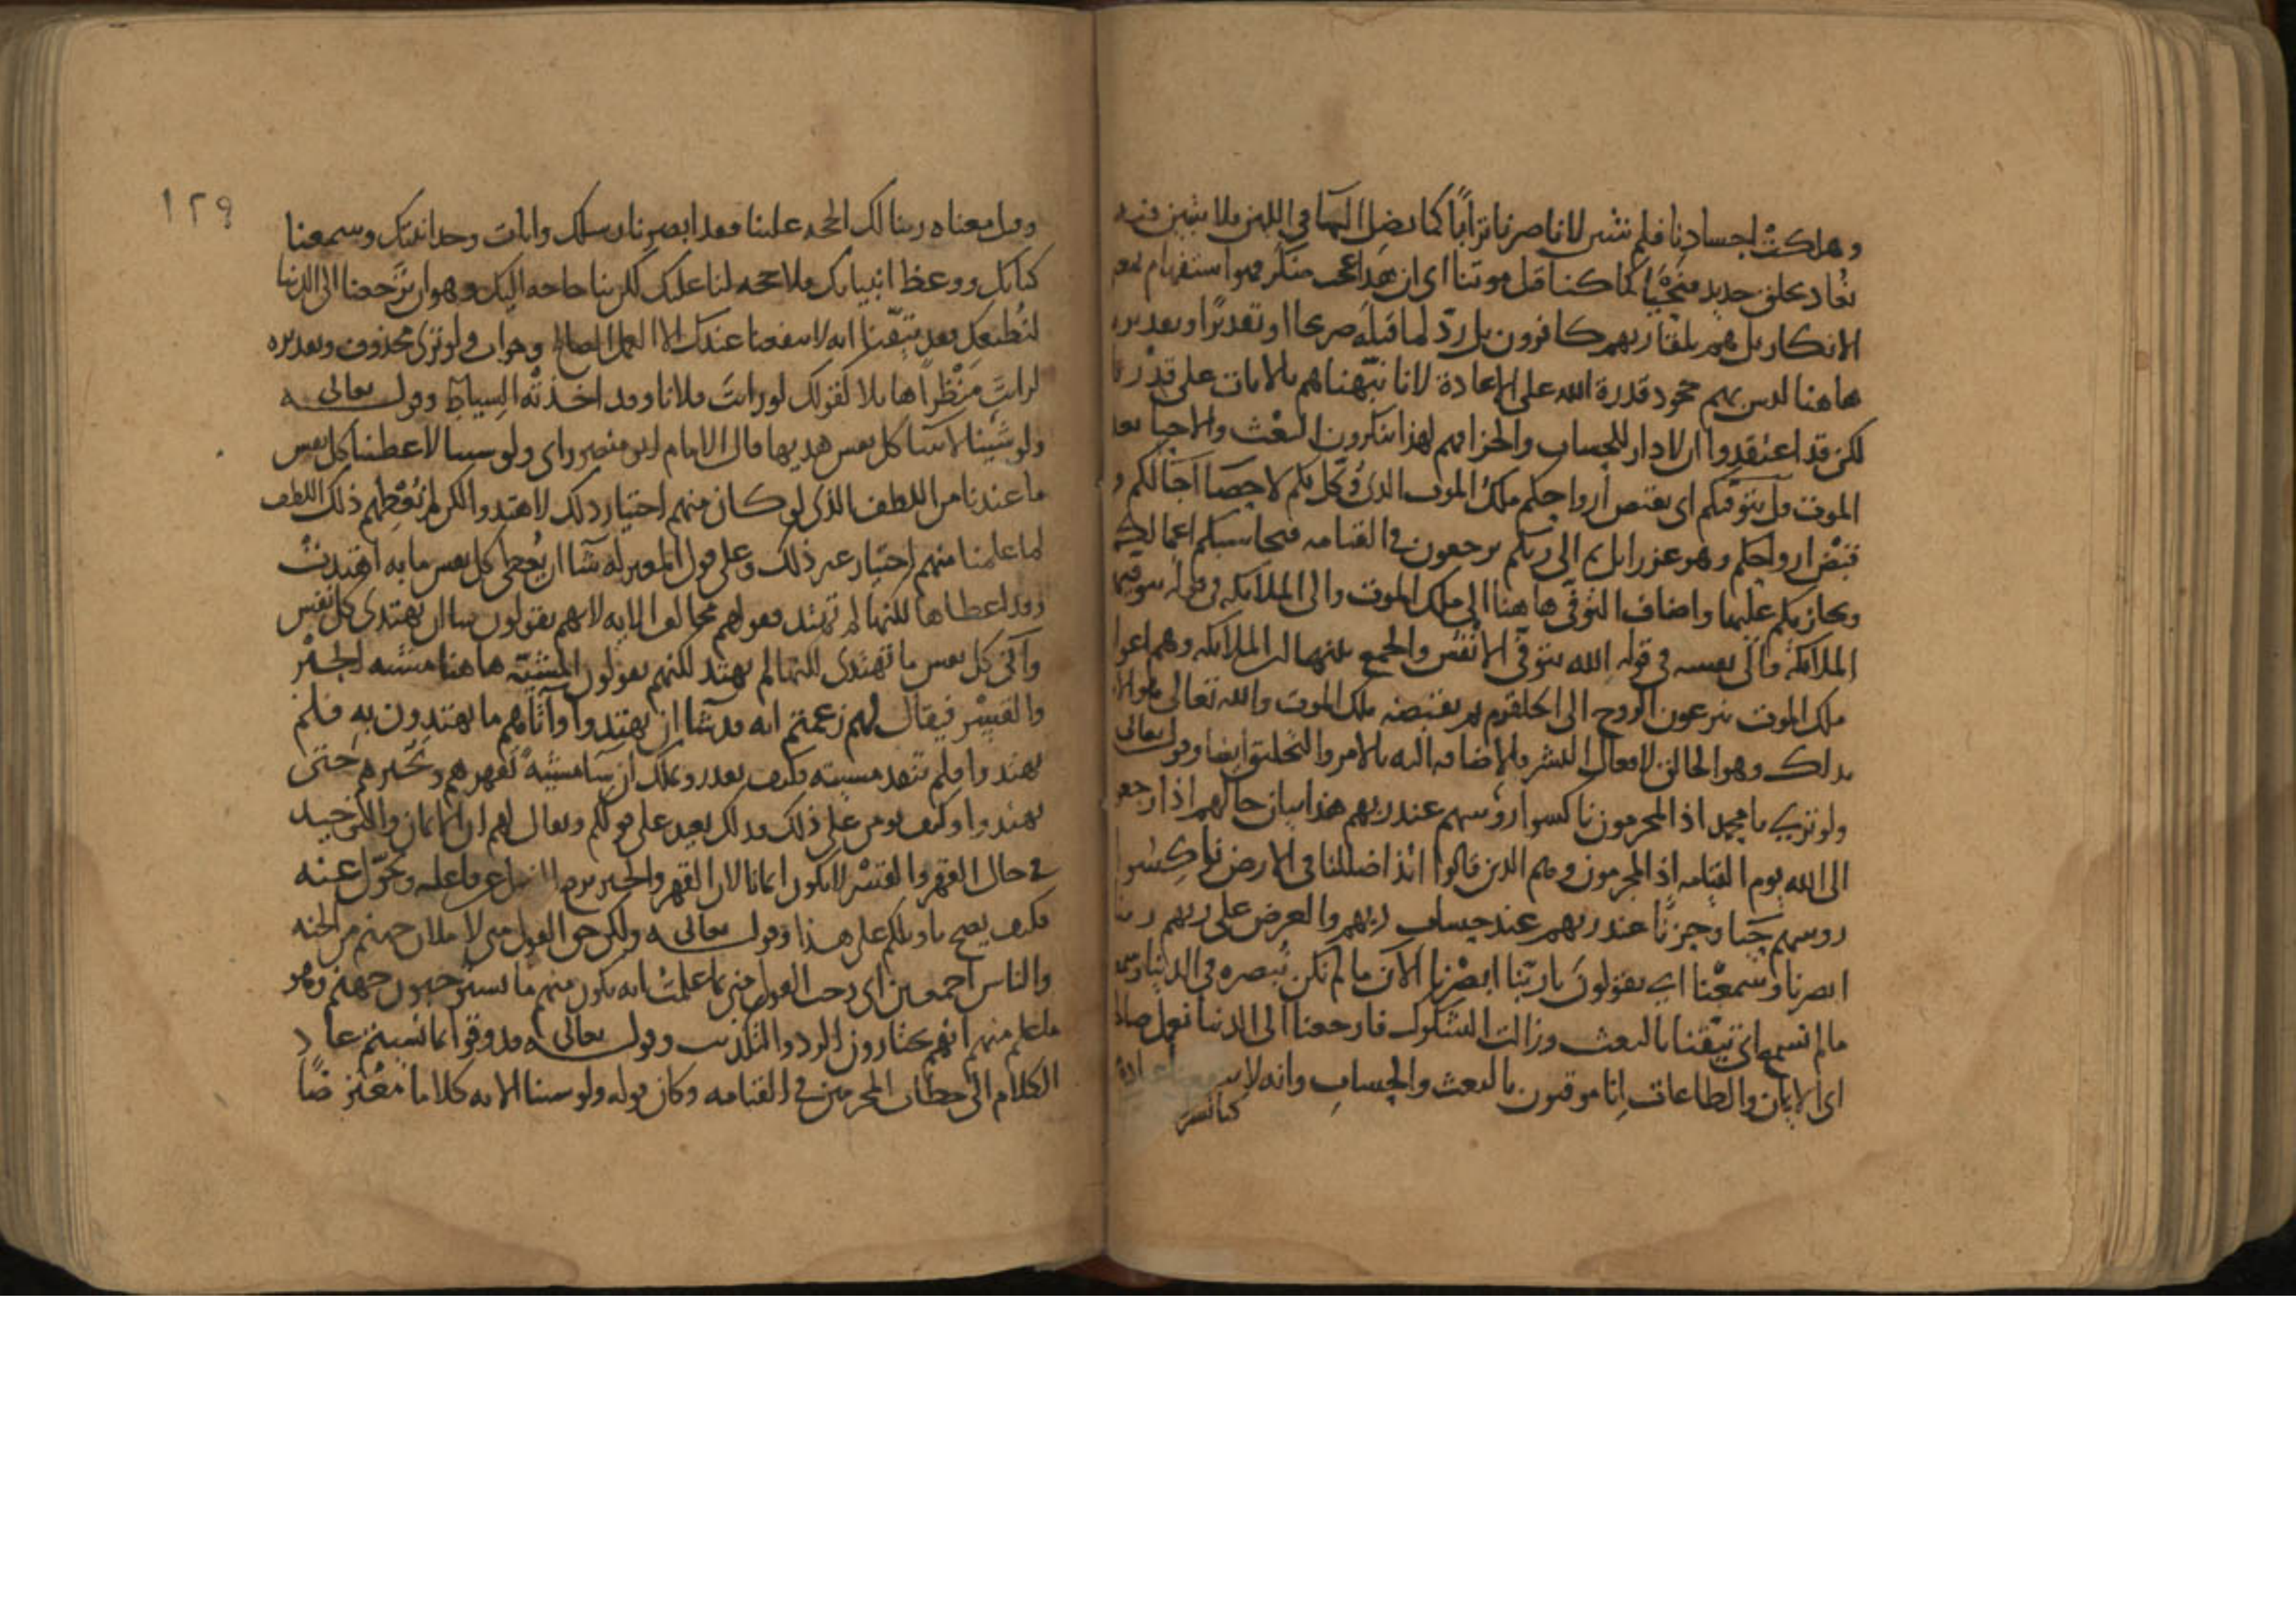 وهلكت اجسادنا فلم تتبين لانا صرنا ترابا كما يضل الما في اللبن فلا يتبين فيه
نعاد بخلق جديد كما كنا قبل موتنا اى ان هذا عجب منكر فهو استفهام بمعنى
الانكار بل هم بلقا ربهم كافرون بل رد لما قبله صريحا او تقديرا وتقديره
هاهنا ليس بهم جحود قدرة الله على الاعادة لانا نبهناهم بالايات على قدرتنا
لكن قد اعتقدوا ان لا دار للحساب والجزا فهم لهذا ينكرون البعث والاحيا بعد
الموت قل يتوفيكم اى يقبض ارواحكم ملك الموت الذى وكل بكم لاحصا آجالكم و
قبض ارواحكم وهو عزرايل ثم الى ربكم ترجعون في القيامه فيحاسبكم اعمالكم
ويجازيكم عليها واضاف التوفي هاهنا الى ملك الموت والى الملايكه في قوله تتوفيهم
الملايكة والى نفسه في قوله الله يتوفى الانفس والجمع بينهما ان الملايكه وهم اعوان
ملك الموت ينزعون الروح الى الحلقوم ثم يقبضه ملك الموت والله تعالى هو الامر
بذلك وهو الخالق لافعال البشر فالاضافه اليه بالامر والتخليق ايضا وقوله تعالى
ولو ترى يا محمد اذ المجرمون ناكسوا روسهم عند ربهم هذا بيان حالهم اذا رجعوا
الى الله يوم القيامه اذ المجرمون وهم الذين قالوا ائذا اضللنا في الارض ناكسوا
روسهم حيا وحزنا عند ربهم عند حساب ربهم والعرض على ربهم ربنا
ابصرنا وسمعنا اى يقولون يا ربنا ابصرنا الآن ما لم نكن نبصره في الدنيا وسمعنا
مالم نسمع اى تيقنا بالبعث وزالت الشكوك فارجعنا الى الدنيا نعمل صالحا
اى الايمان والطاعات انا موقنون بالبعث والحساب وانه لا
١٢٩
وقيل معناه ربنا لك الحجه علينا فقد ابصرنا رسلك وايات وحدانيتك وسمعنا
كتابك ووعظ انبيايك فلا حجه لنا عليك لكن بنا حاجه اليك وهو ان ترجعنا الى الدنيا
لنطيعك بعد تيقننا انه لا ينفعنا عندك الا العمل الصالح وجواب ولو ترى محذوف وتقديره
لرايت منظرا هايلا كقولك لو رايت فلانا وقد اخذته السياط وقوله تعالى
ولو شينا لآتينا كل نفس هديها قال الامام ابو منصور اى ولو شينا لاعطينا كل نفس
ما عندنا من اللطف الذى لو كان منهم اختيار ذلك لاهتدوا لكن لم نعطهم ذلك اللطف
لما علمنا منهم اختيار غير ذلك وعلى قول المعتزله شا ان يعطى كل نفس ما به اهتدت
وقد اعطاها لكنها لم تهتد فقولهم مخالف الايه لانهم يقولون شا ان يهتدى كل نفس
وآتى كل نفس ما تهتدى لكنها لم يهتد لكنهم يقولون المشيّة هاهنا مشيه الجبر
والقسر فيقال لهم زعمتم انه قد شا ان يهتدوا وآتاهم ما يهتدون به فلم
يهتدوا ولم تنفذ مشيته فكيف يقدر ويملك ان شا مشية لقهرهم وتجبرهم حتى
يهتدوا وكيف يومن على ذلك فذلك بعيد على قولكم ويقال لهم ان الايمان والتوحيد
في حال القهر والقسر لا يكون ايمانا لان القهر والجبر يرفع الفعل عن فاعله وتحول عنه
فكيف يصح تاويلكم على هذا وقوله تعالى ولكن حق القول منى لاملان جهنم من الجنه
والناس اجمعين اى وجب القول منى بما علمت انه يكون منهم ما يستوجبون جهنم وهو
ما علم منهم انهم يختارون الرد والتكذيب وقوله تعالى فذوقوا بما نسيتم عاد
الكلام الى خطاب المجرمين في القيامه وكان قوله ولو شينا الايه كلاما معترضا